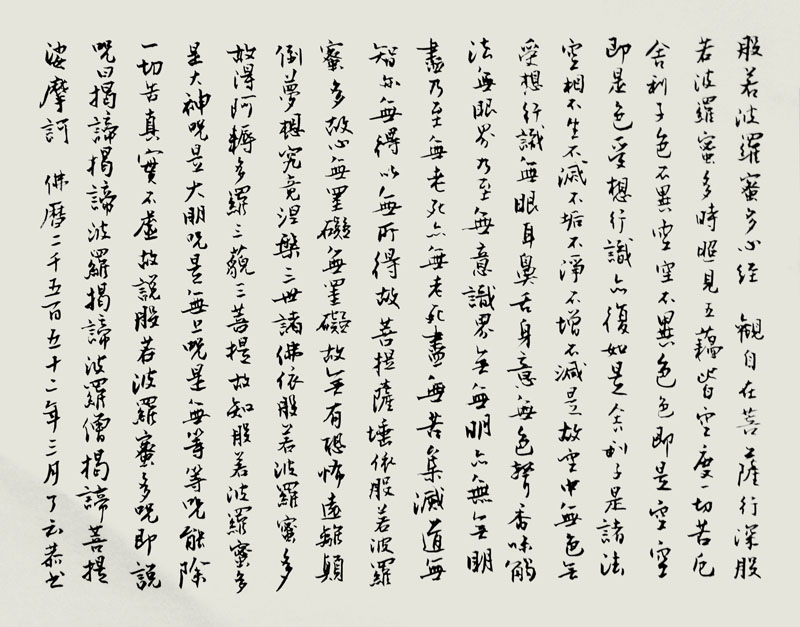 般若波羅蜜多心經 觀自在菩薩行深般
若波羅蜜多時照見五蘊皆空度一切苦厄
舍利子色不異空空不異色色即是空空
即是色受想行識亦復如是舍利子是諸法
空相不生不滅不垢不淨不增不減是故空中無色無
受想行識無眼耳鼻舌身意無色聲香味觸
法無眼界乃至無意識界無無明亦無無明
盡乃至無老死亦無老死盡無苦集滅道無
智亦無得以無所得故菩提薩埵依般若波羅
蜜多故心無罣礙無罣礙故無有恐怖遠離顛
倒夢想究竟涅槃三世諸佛依般若波羅蜜多
故得阿耨多羅三藐三菩提故知般若波羅蜜多
是大神咒是大明咒是無上咒是無等等咒能除
一切苦真實不虛故說般若波羅蜜多咒即說
咒曰揭諦揭諦波羅揭諦波羅僧揭諦菩提
娑摩訶 佛曆二千五百五十二年三月了云恭书